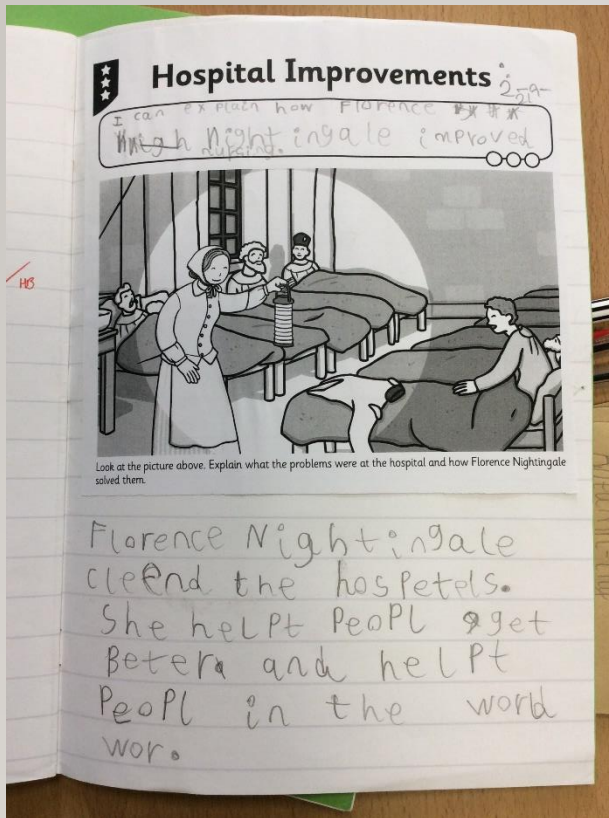 Hospital Improvements
I can explain how Florence
Nightingale improved
nursing.
Look at the picture above. Explain what the problems were at the hospital and how Florence Nightingale
solved them.
HB
Florence Nightingale
cleend the hospetels.
She helpt PeoPl get
Beter and helpt
PeoPl in the world
wor.